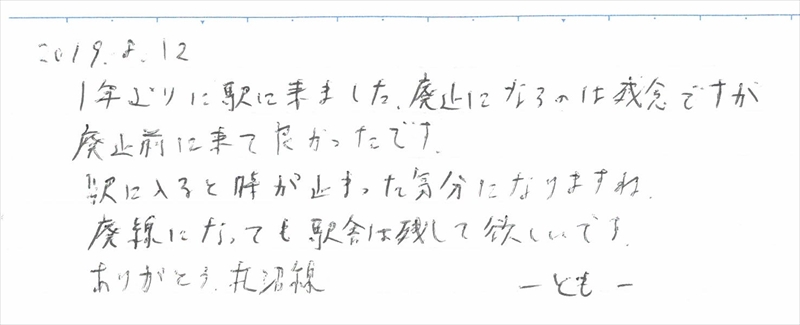 2019.8.12
1年ぶりに駅に来ました。廃止になるのは残念ですが
廃止前に来て良かったです。
駅に入ると時が止まった気分になりますね。
廃線になっても駅舎は残して欲しいです。
ありがとう。札沼線
ーともー